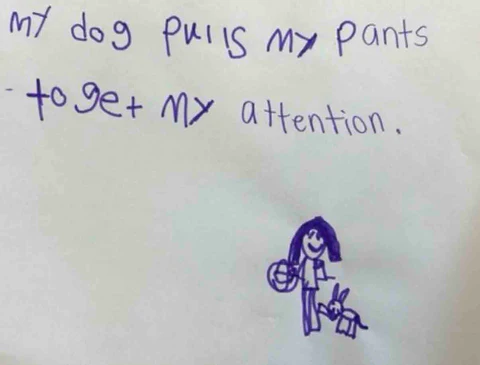 my dog pulls my pants
to get my attention.